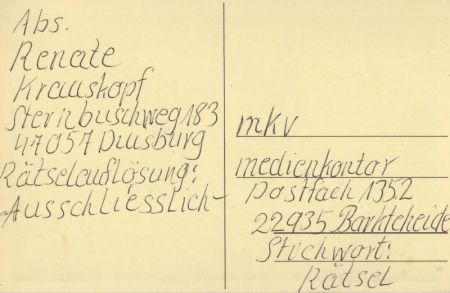 Abs.
Renate
Krauskopf
Sternbuschweg 183
47057 Duisburg
Rätselauflösung:
-Ausschliesslich-
mkv
medienkontor
Postfach 1352
22935 Barkteheide
Stichwort:
Rätsel